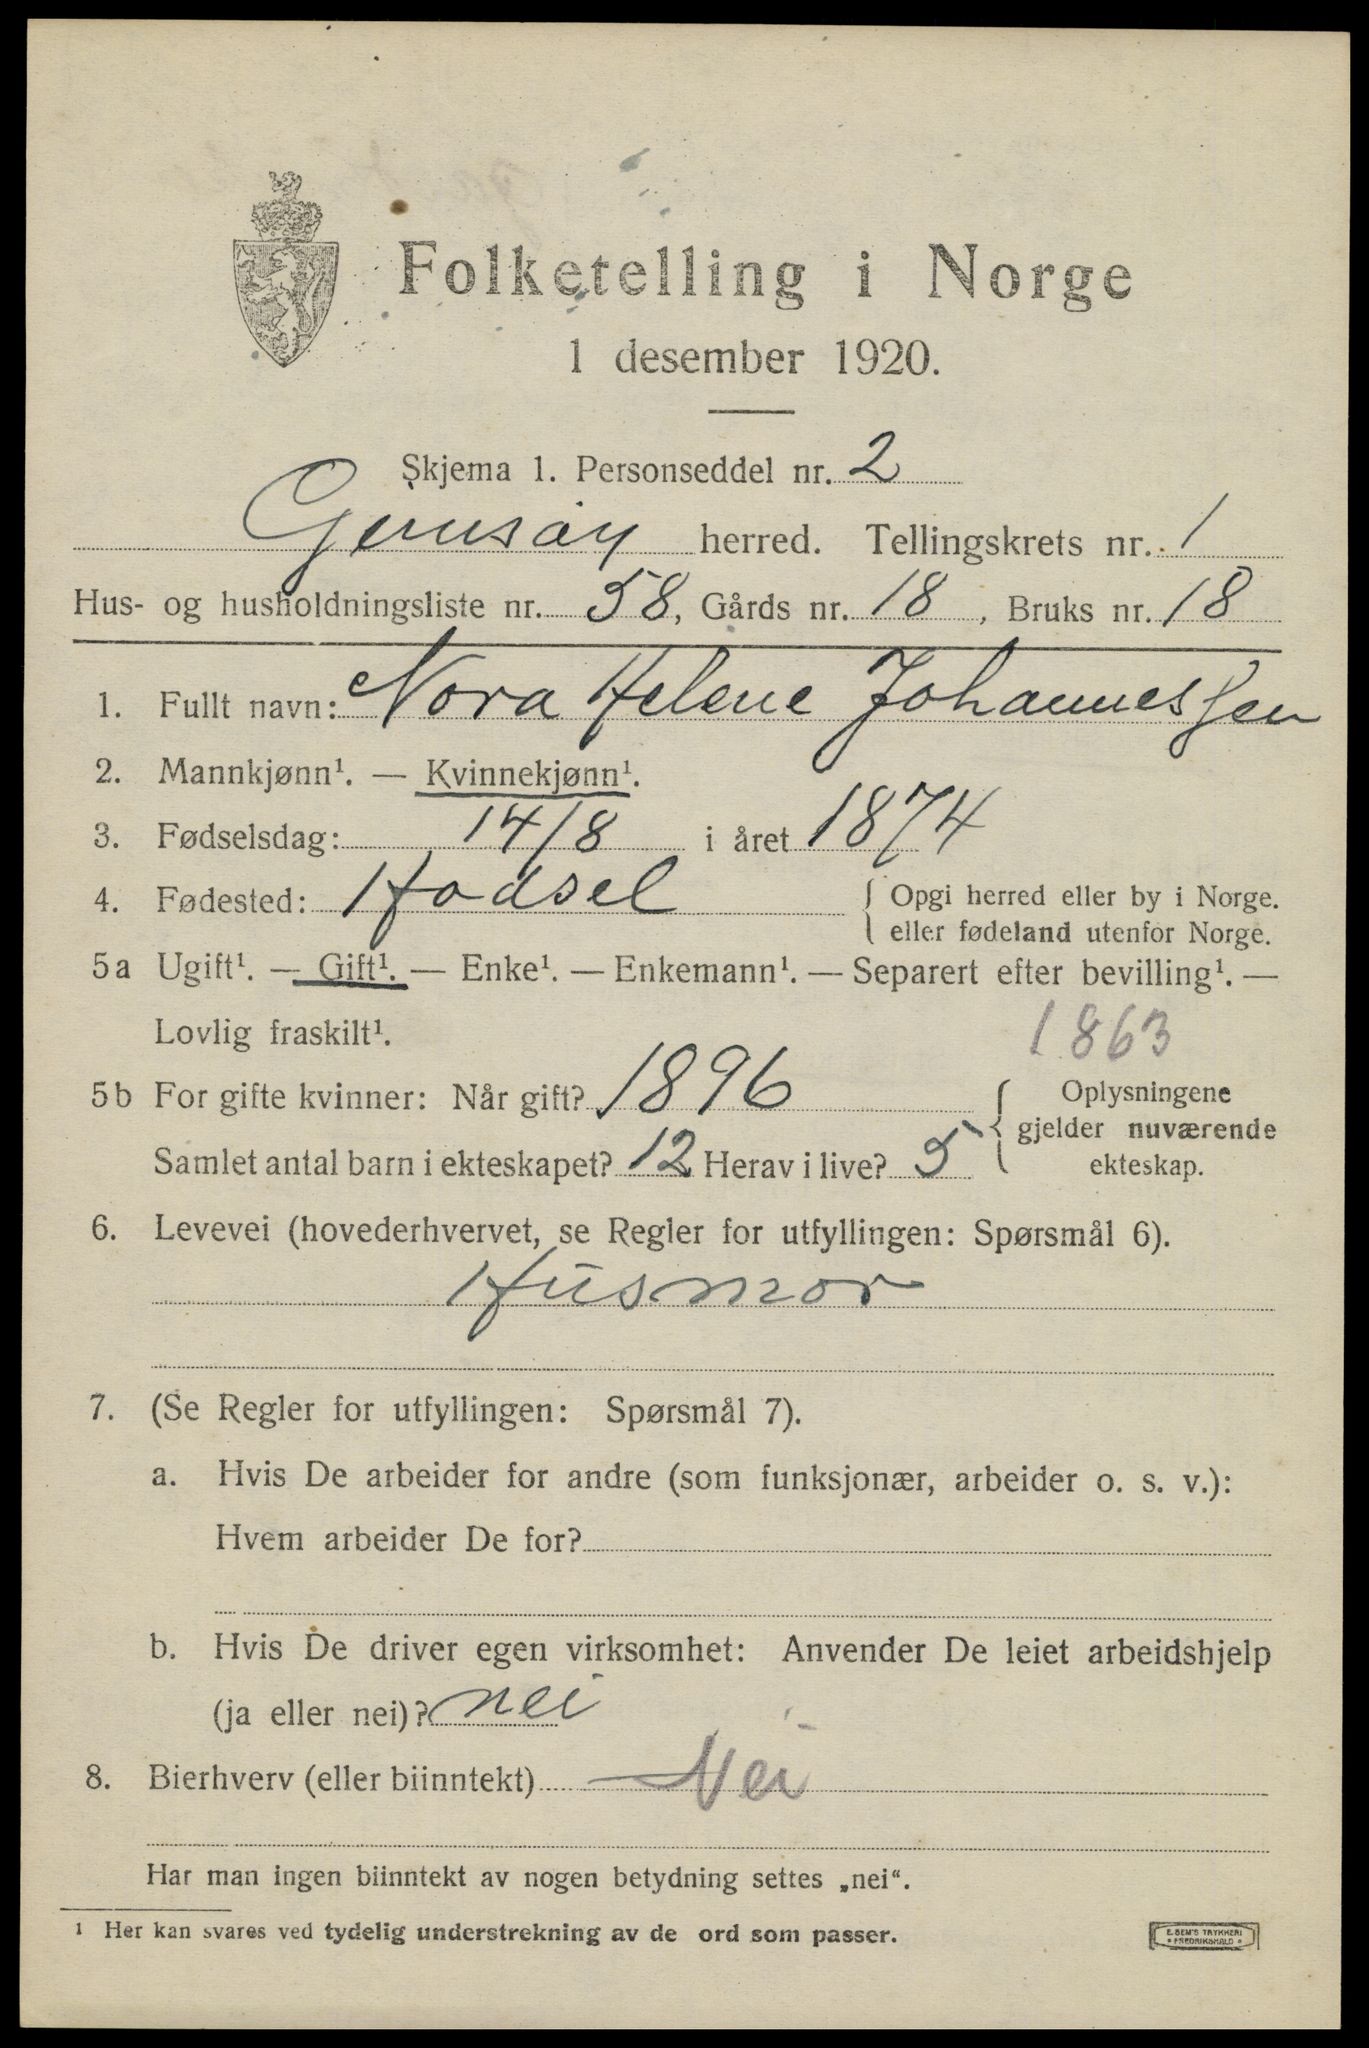 Folketelling i Norge
1 desember 1920.
Skjema 1. Personseddel nr. 2
Gimsøy herred. Tellingskrets nr. 1
Hus- og husholdningsliste nr. 58, Gårds nr. 18, Bruks nr. 18
1. Fullt navn: Nora Helene Johannessen
2. Mannkjønn¹. — Kvinnekjønn¹.
3. Fødselsdag: 14/8 i året 1874
4. Fødested: Hadsel { Opgi herred eller by i Norge.
eller fødeland utenfor Norge.
5a Ugift¹. — Gift¹. — Enke¹. — Enkemann¹. — Separert efter bevilling¹. —
Lovlig fraskilt¹. 1863
5b For gifte kvinner: Når gift? 1896
Samlet antal barn i ekteskapet? 12 Herav i live? 5
Oplysningene
gjelder nuværende
ekteskap.
6. Levevei (hovederhvervet, se Regler for utfyllingen: Spørsmål 6).
Husmor
7. (Se Regler for utfyllingen: Spørsmål 7).
a. Hvis De arbeider for andre (som funksjonær, arbeider o. s. v.):
Hvem arbeider De for?
b. Hvis De driver egen virksomhet: Anvender De leiet arbeidshjelp
(ja eller nei)? nei
8. Bierhverv (eller biinntekt) Nei
Har man ingen biinntekt av nogen betydning settes „nei“.
¹ Her kan svares ved tydelig understrekning av de ord som passer.
E. SEM'S TRYKKERI
FREDRIKSHALD